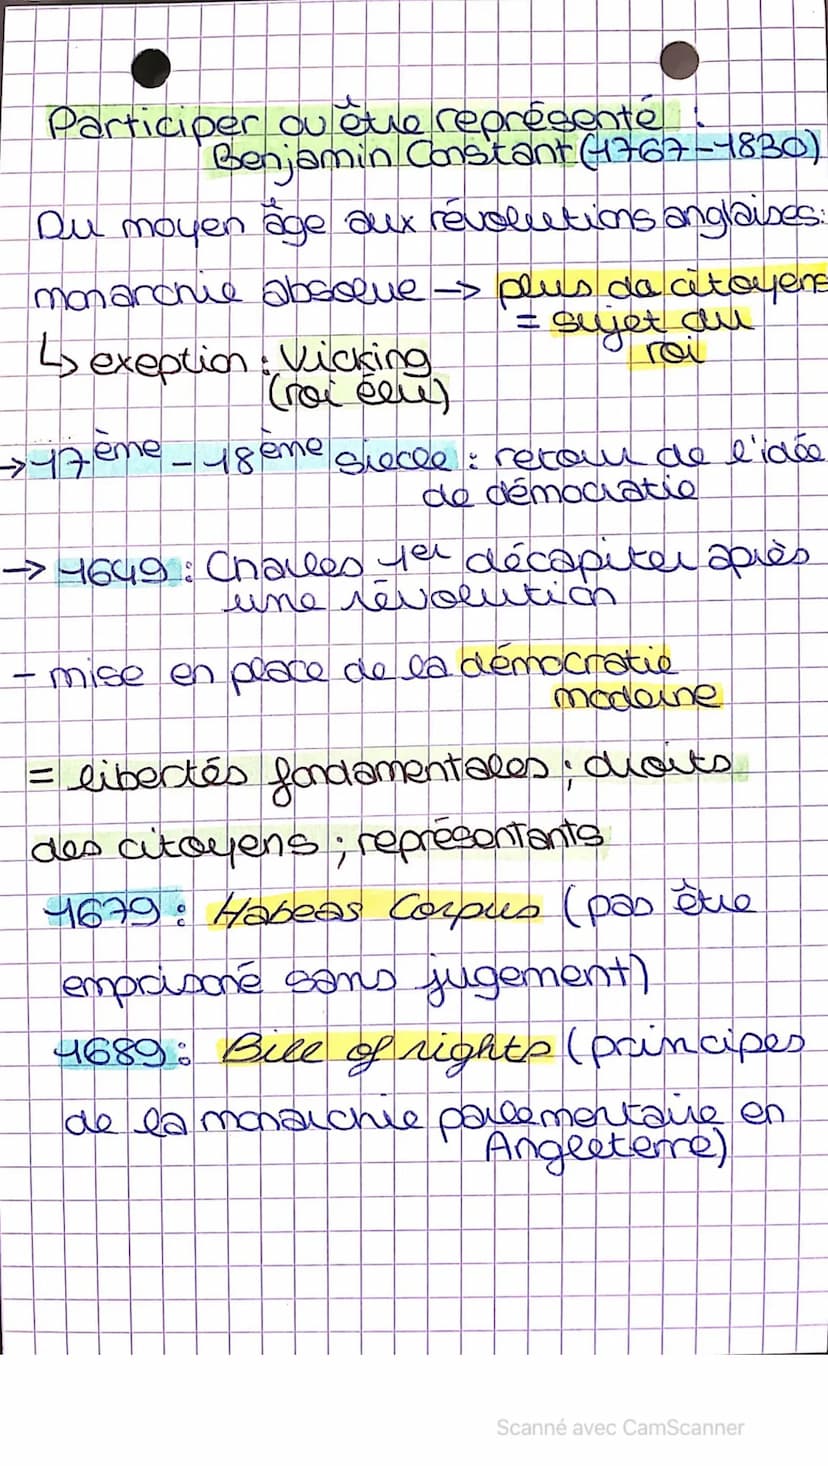 Participer ou être représenté :
Benjamin Constant (1767-1830)
Du moyen âge aux révolutions anglaises:
monarchie absolue -> plus da citoyens
= sujet du
roi
↳ exeption : Vicking
(roi élu)
-> 17ème - 18ème siècle : retour de l'idée
de démocratie
-> 1649 : Charles 1er décapiter après
une révolution
- mise en place de la démocratie
moderne
= libertés fondamentales ; droits
des citoyens ; représentants
1679 : Habeas Corpus (pas être
emprisoné sans jugement)
1689 : Bill of rights (principes
de la monarchie parlementaire en
Angleterre)
Scanné avec CamScanner